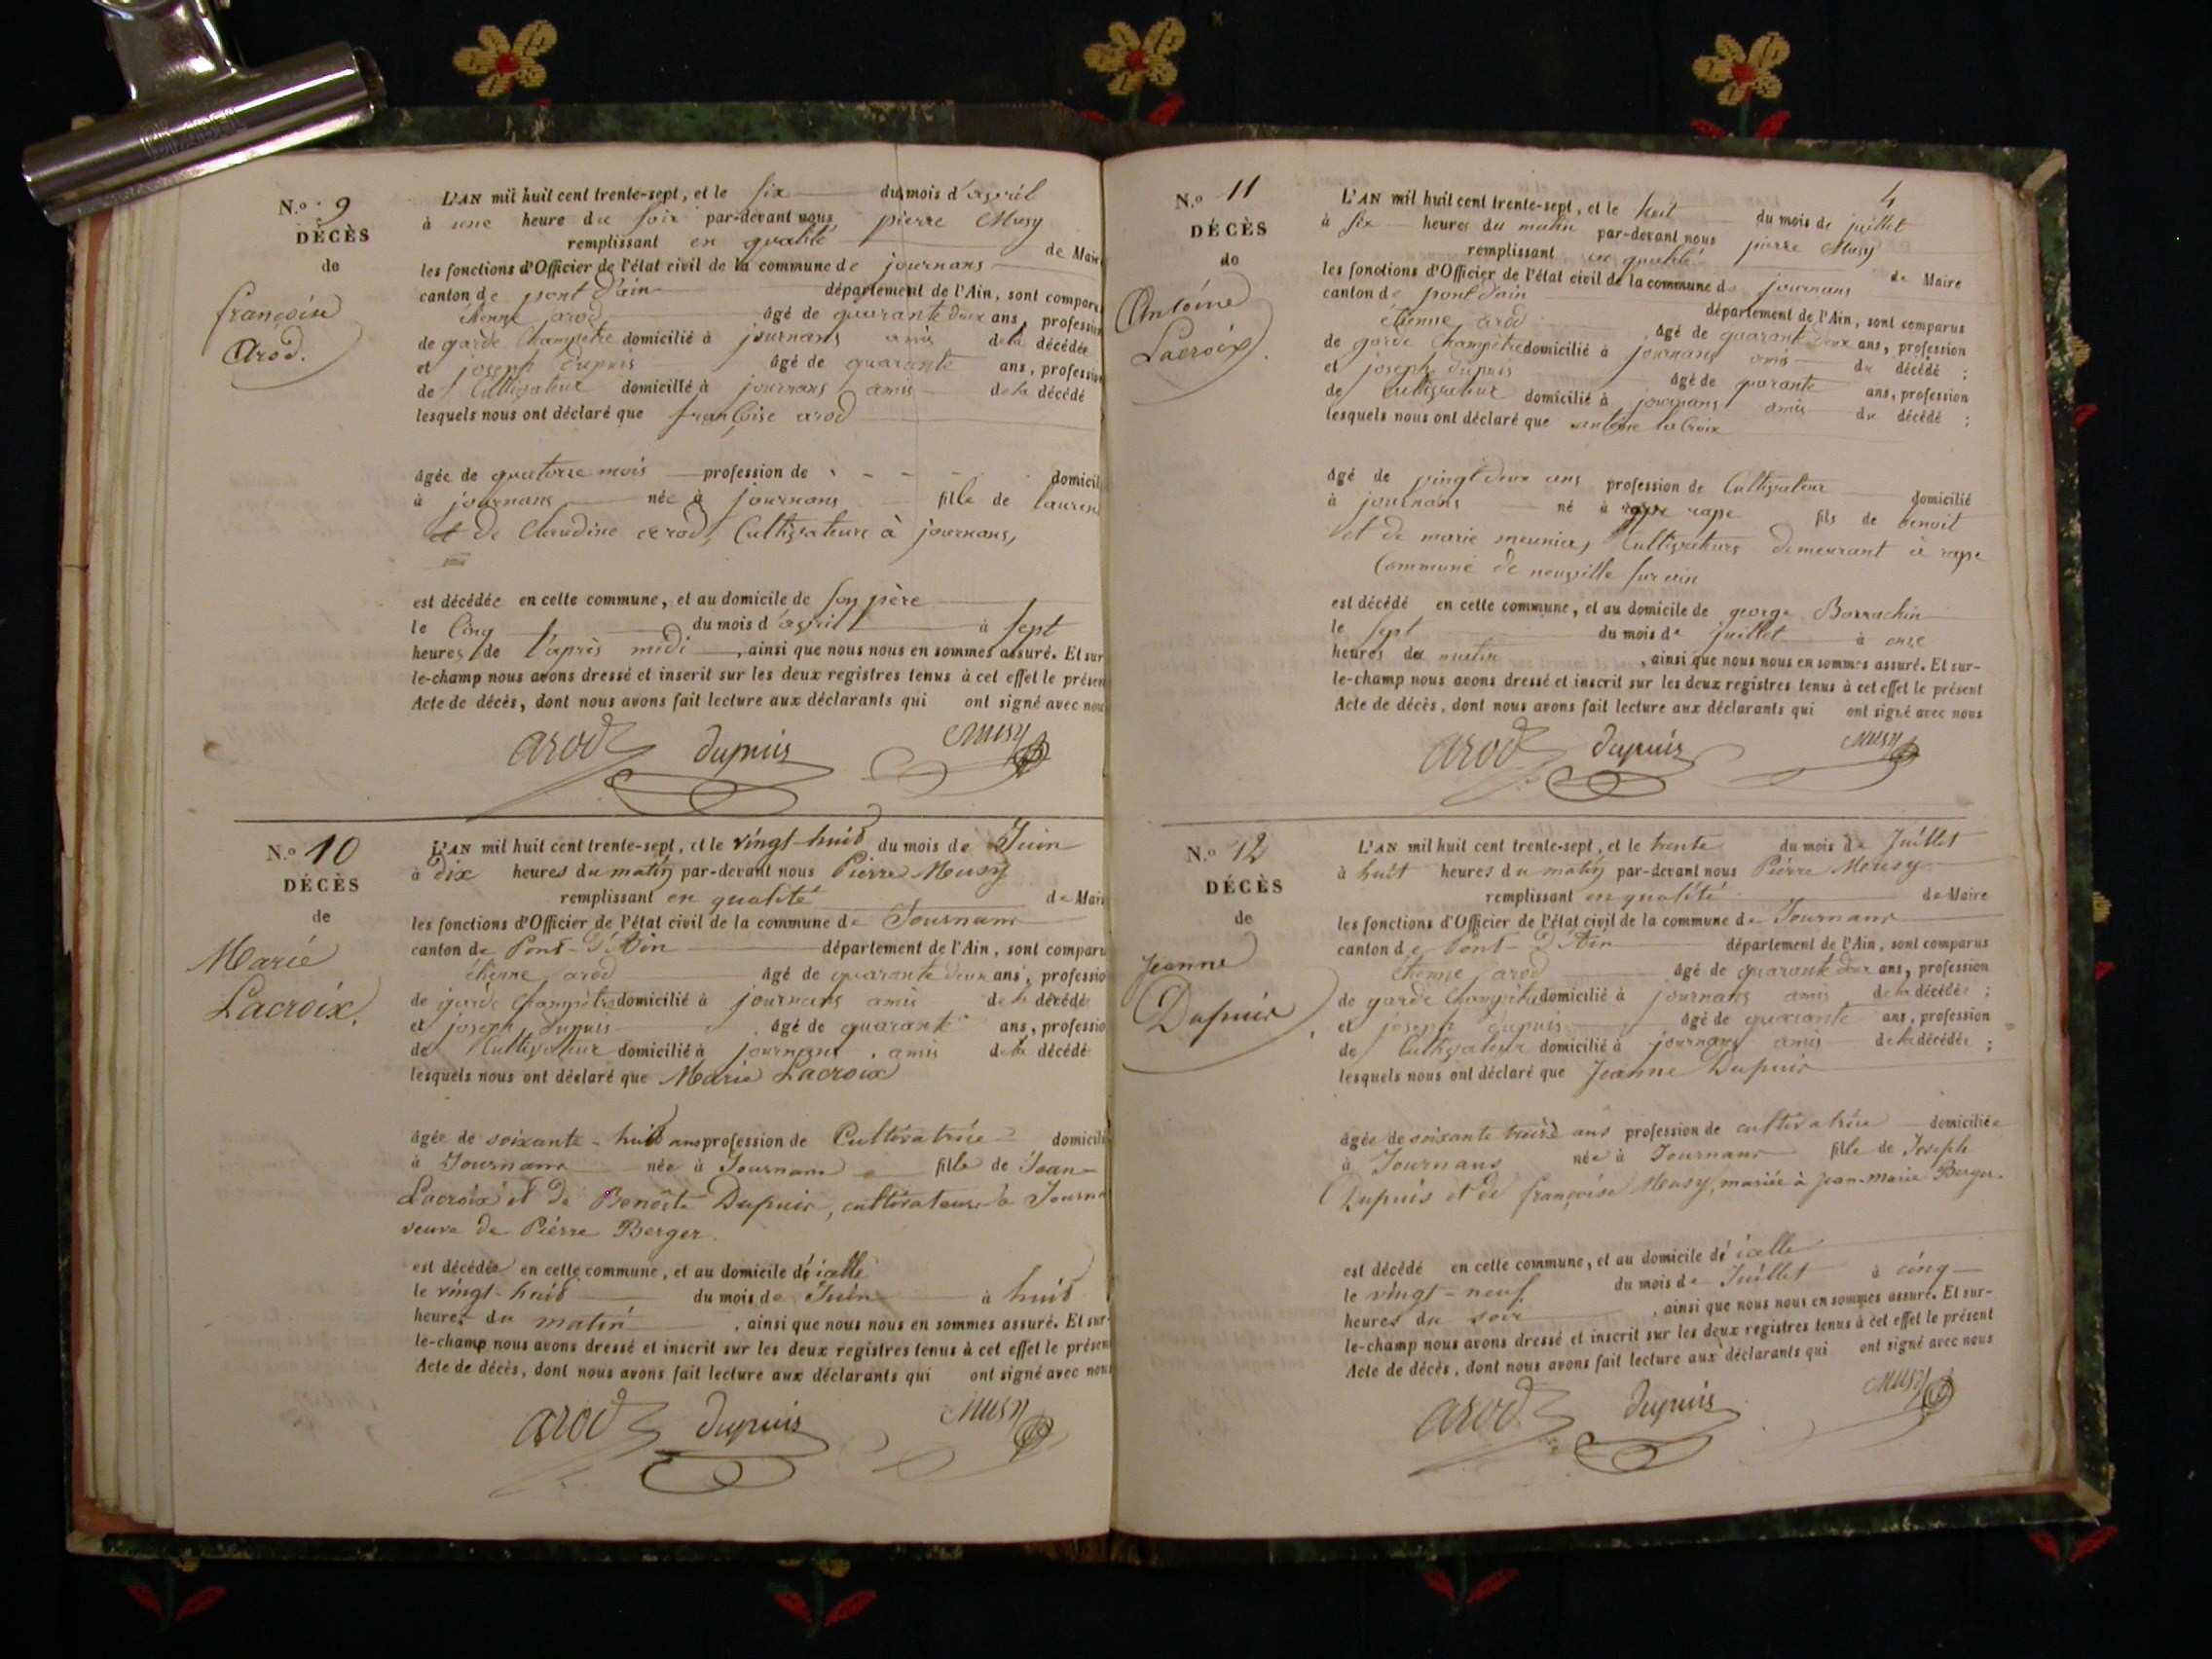 N.o 9
DÉCÈS
de
françoise
Arod.
L'AN mil huit cent trente-sept, et le six du mois d'avril
à une heure du soir par-devant nous pierre Musy
remplissant en qualité de Mair
les fonctions d'Officier de l'état civil de la commune de journans
canton de pont d'ain département de l'Ain, sont comparu
étienne arod âgé de quarante deux ans, profession
de garde Champêtre domicilié à journans amis de la décédée
et joseph dupuis âgé de quarante ans, profession
de Cultivateur domicilié à journans amis de la décédé
lesquels nous ont déclaré que françoise arod
âgée de quatorze mois profession de domicil
à journans née à journans fille de lauren
et de Claudine arod, Cultivateurs à journans,
est décédée en cette commune, et au domicile de son père
le Cinq du mois d'avril à sept
heures de l'après midi, ainsi que nous nous en sommes assuré. Et sur
le-champ nous avons dressé et inscrit sur les deux registres tenus à cet effet le présen
Acte de décès, dont nous avons fait lecture aux déclarants qui ont signé avec nou
arod dupuis Musy
N.o 10
DÉCÈS
de
Marie
Lacroix.
L'AN mil huit cent trente-sept, et le vingt-huit du mois de Juin
à dix heures du matin par-devant nous Pierre Musy
remplissant en qualité de Mair
les fonctions d'Officier de l'état civil de la commune de Journans
canton de Pont-d'Ain département de l'Ain, sont comparu
étienne arod âgé de quarante deux ans, professio
de garde Champêtre domicilié à journans amis de la décédée
et joseph dupuis âgé de quarante ans, professio
de Cultivateur domicilié à journans amis de la décédé
lesquels nous ont déclaré que Marie Lacroix
âgée de soixante-huit ans profession de Cultivatrice domicili
à Journans née à Journans fille de Jean
Lacroix et de Benoîte Dupuis, cultivateurs à Journ
veuve de Pierre Berger.
est décédée en cette commune, et au domicile d'icelle
le vingt-huit du mois de Juin à huit
heures du matin, ainsi que nous nous en sommes assuré. Et sur-
le-champ nous avons dressé et inscrit sur les deux registres tenus à cet effet le présen
Acte de décès, dont nous avons fait lecture aux déclarants qui ont signé avec nous
arod dupuis Musy
4
N.o 11
DÉCÈS
de
Antoine
Lacroix.
L'AN mil huit cent trente-sept, et le huit du mois de juillet
à six heures du matin par-devant nous pierre Musy
remplissant en qualité de Maire
les fonctions d'Officier de l'état civil de la commune de journans
canton de pont d'ain département de l'Ain, sont comparus
étienne arod âgé de quarante deux ans, profession
de garde Champêtre domicilié à journans amis du décédé ;
et joseph dupuis âgé de quarante ans, profession
de Cultivateur domicilié à journans amis du décédé ;
lesquels nous ont déclaré que antoine laCroix
âgé de vingt deux ans profession de Cultivateur domicilié
à journans né à rape fils de benoit
et de marie meunier, Cultivateurs demeurant à rape
Commune de neuville sur ain
est décédé en cette commune, et au domicile de george Borrachin
le sept du mois de juillet à onze
heures du matin, ainsi que nous nous en sommes assuré. Et sur-
le-champ nous avons dressé et inscrit sur les deux registres tenus à cet effet le présent
Acte de décès, dont nous avons fait lecture aux déclarants qui ont signé avec nous
arod dupuis Musy
N.o 12
DÉCÈS
de
Jeanne
Dupuis
L'AN mil huit cent trente-sept, et le trente du mois de Juillet
à huit heures du matin par-devant nous Pierre Musy
remplissant en qualité de Maire
les fonctions d'Officier de l'état civil de la commune de Journans
canton de Pont-d'Ain département de l'Ain, sont comparus
étienne arod âgé de quarante deux ans, profession
de garde Champêtre domicilié à journans amis de la décédée ;
et joseph dupuis âgé de quarante ans, profession
de Cultivateur domicilié à journans amis de la décédée ;
lesquels nous ont déclaré que Jeanne Dupuis
âgée de soixante treize ans profession de cultivatrice domiciliée
à Journans née à Journans fille de Joseph
Dupuis et de françoise Musy, mariée à jean-marie Berger.
est décédé en cette commune, et au domicile d'icelle
le vingt-neuf du mois de Juillet à cinq
heures du soir, ainsi que nous nous en sommes assuré. Et sur-
le-champ nous avons dressé et inscrit sur les deux registres tenus à cet effet le présent
Acte de décès, dont nous avons fait lecture aux déclarants qui ont signé avec nous
arod dupuis Musy